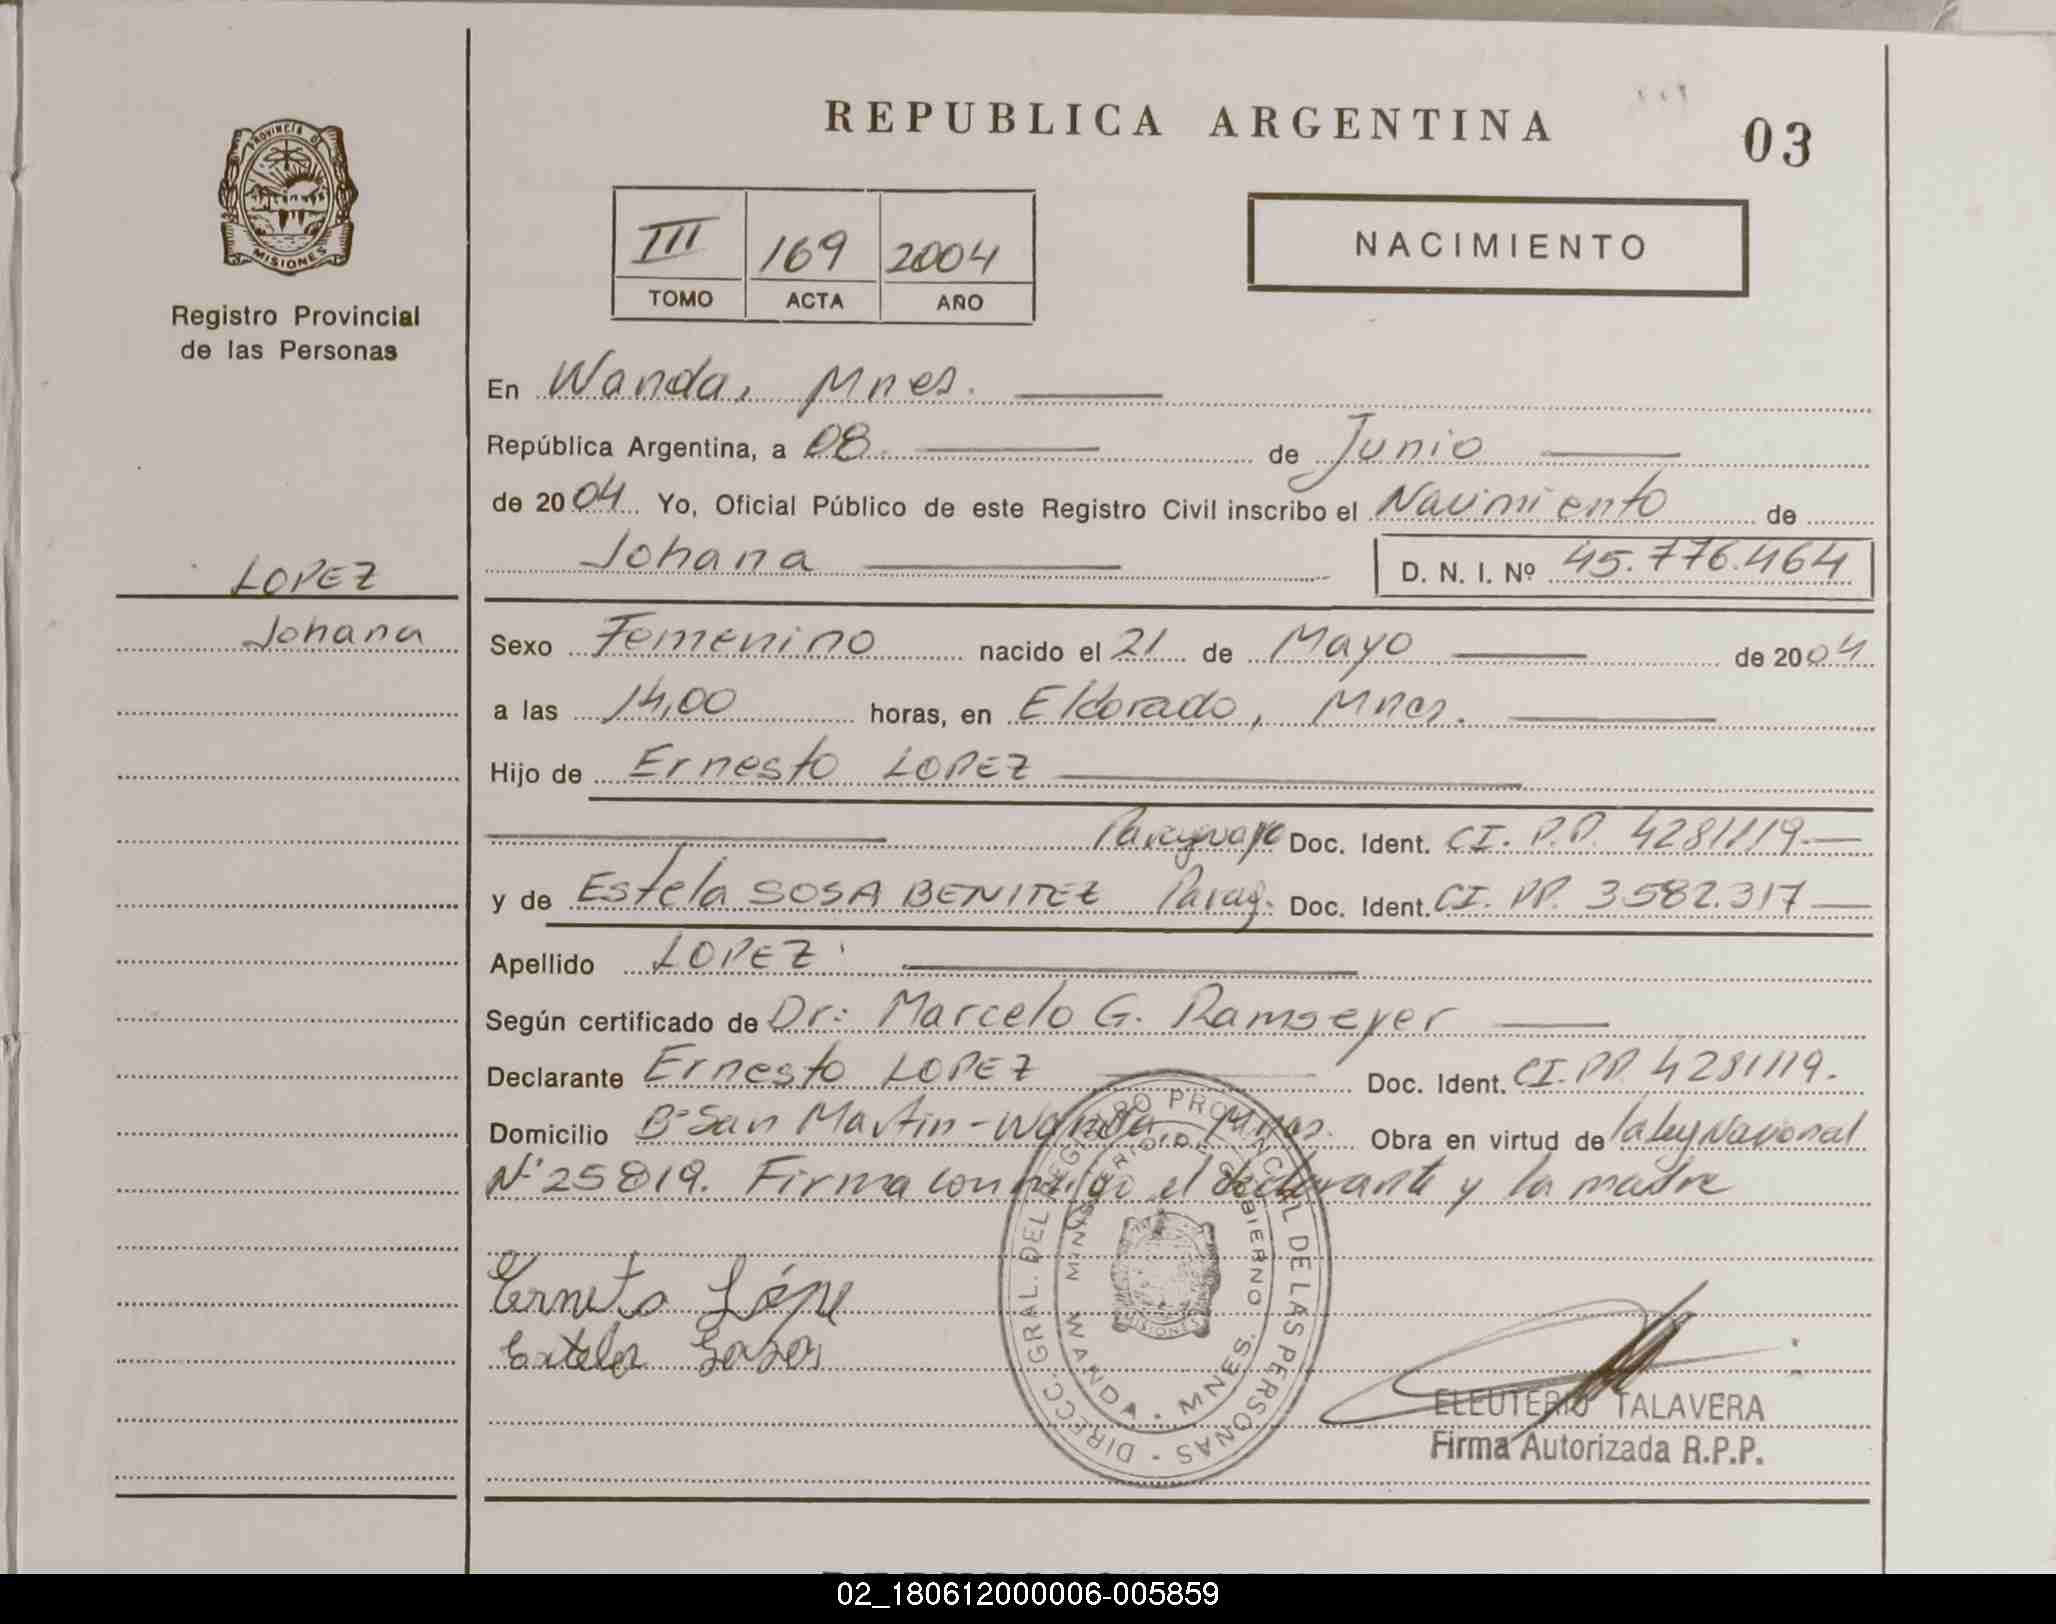 REPUBLICA ARGENTINA
03
PROVINCIA DE
MISIONES
Registro Provincial
de las Personas
III 169 2004
TOMO ACTA AÑO
NACIMIENTO
En Wanda, Mnes.
República Argentina, a 08 de Junio
de 2004 Yo, Oficial Público de este Registro Civil inscribo el Nacimiento de
Johana D. N. I. Nº 45.776.464
LOPEZ
Johana
Sexo Femenino nacido el 21 de Mayo de 2004
a las 14,00 horas, en Eldorado, Mnes.
Hijo de Ernesto LOPEZ
Paraguayo Doc. Ident. CI. P.P. 4281119.
y de Estela SOSA BENITEZ Parag. Doc. Ident. CI. PP. 3.582.317
Apellido LOPEZ
Según certificado de Dr: Marcelo G. Ramseyer
Declarante Ernesto LOPEZ Doc. Ident. CI. PP. 4281119.
Domicilio Bº San Martin - Wanda, Mnes. Obra en virtud de la ley Nacional
Nº 25819. Firma conmigo el declarante y la madre
DIRECC. GRAL. DEL REGISTRO PROVINCIAL DE LAS PERSONAS
MINISTERIO DE GOBIERNO
WANDA - MNES.
MISIONES
Ernesto Lópe
Estela Sosa
ELEUTERIO TALAVERA
Firma Autorizada R.P.P.
02_180612000006-005859